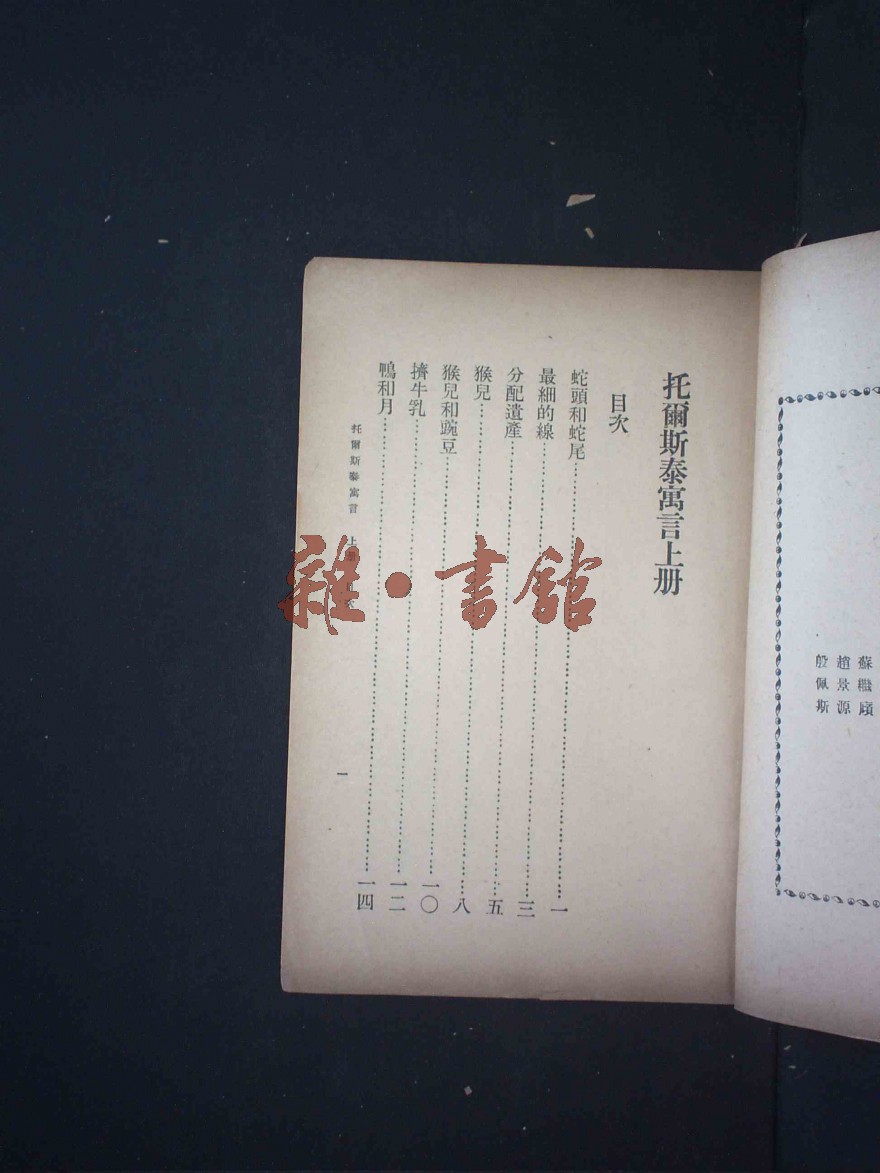 蘇繼廎
趙景源
殷佩斯
托爾斯泰寓言上册
目次
蛇頭和蛇尾……一
最細的線……三
分配遺產……五
猴兒……八
猴兒和豌豆……一〇
擠牛乳……一二
鴨和月……一四
托爾斯泰寓言 上册 目次
一
雜·書館